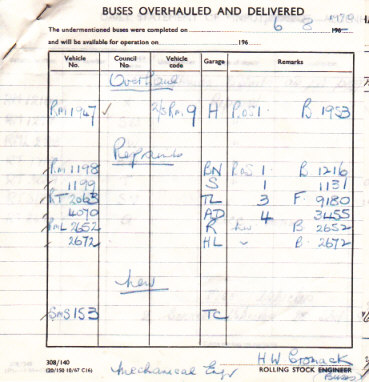 BUSES OVERHAULED AND DELIVERED
The undermentioned buses were completed on 6 8 1970 196
and will be available for operation on 196
Vehicle No. Council No. Vehicle code Garage Remarks
Overhaul
RM 1947 ✓ 2/5 Rm. 9 H R.051. B 1953
Repaints
Rm 1198 BN R.051. B. 1216
1199 S 1 1131
RT 2063 TL 3 F. 9180
4070 AD 4 3455
RmL 2652 R New B 2652
2672 HL " B. 2672
New
SmS 153 TC
308/140
(20/150 10/67 C16)
Mechanical Engr
H W Cromack
ROLLING STOCK ENGINEER
Buses